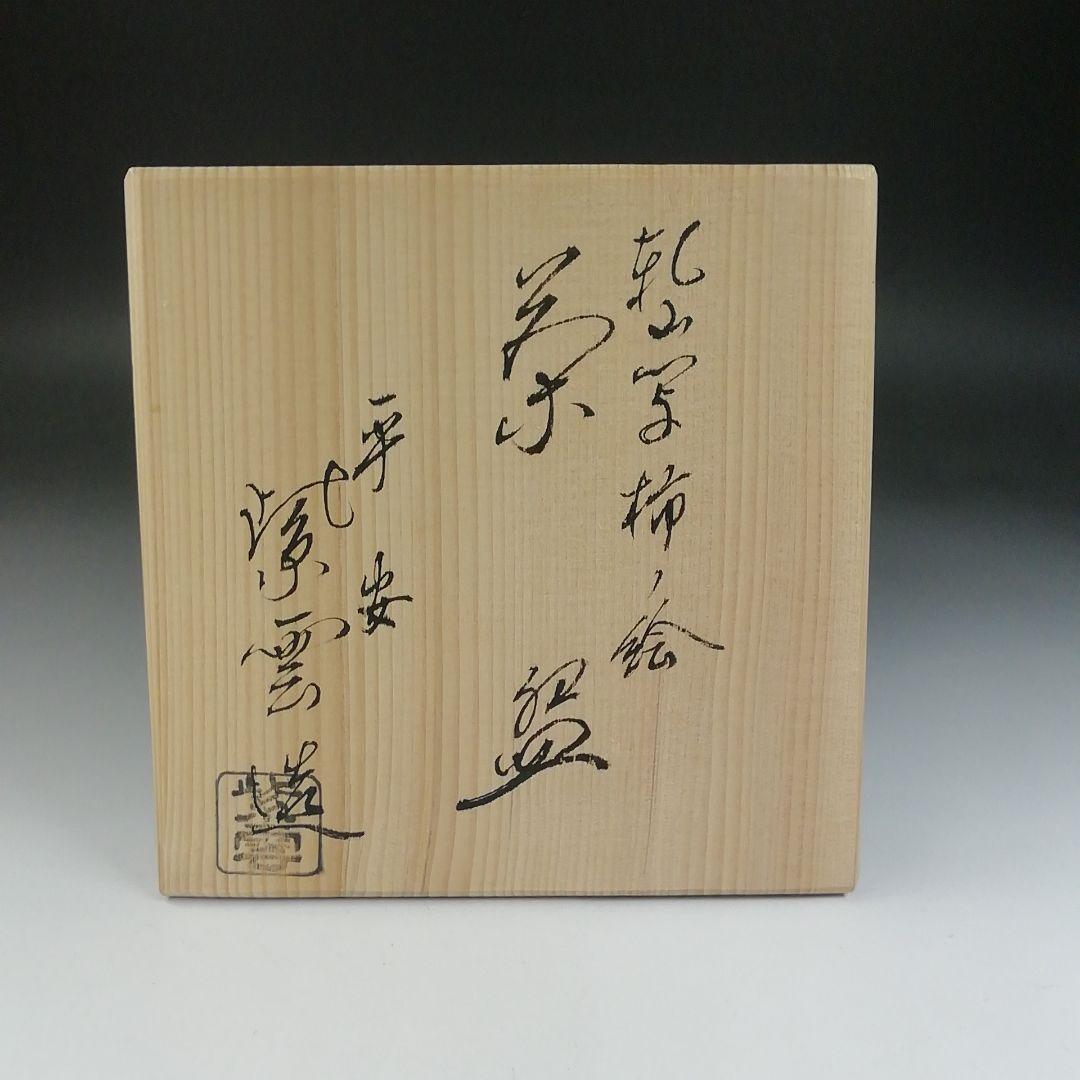 乾山写柿ノ絵
茶盌
平安
紫雲造
紫雲